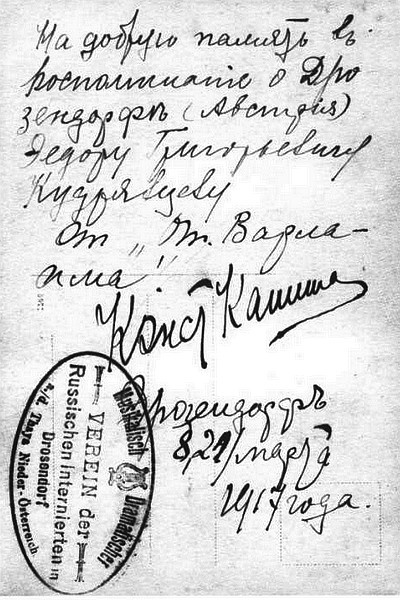 На добрую память въ
воспоминаніе о Дро
зендорфѣ (Австрія)
Федору Григорьевичу
Кудрявцеву
От „Вт. Варла-
има".
Конст Капит
Дрозендорфъ
8/21/марта
1917 года.
Musikalisch Dramatischer
VEREIN der
Russischen Internierten in
Drosendorf
a/d. Thaya Nieder-Österreich.